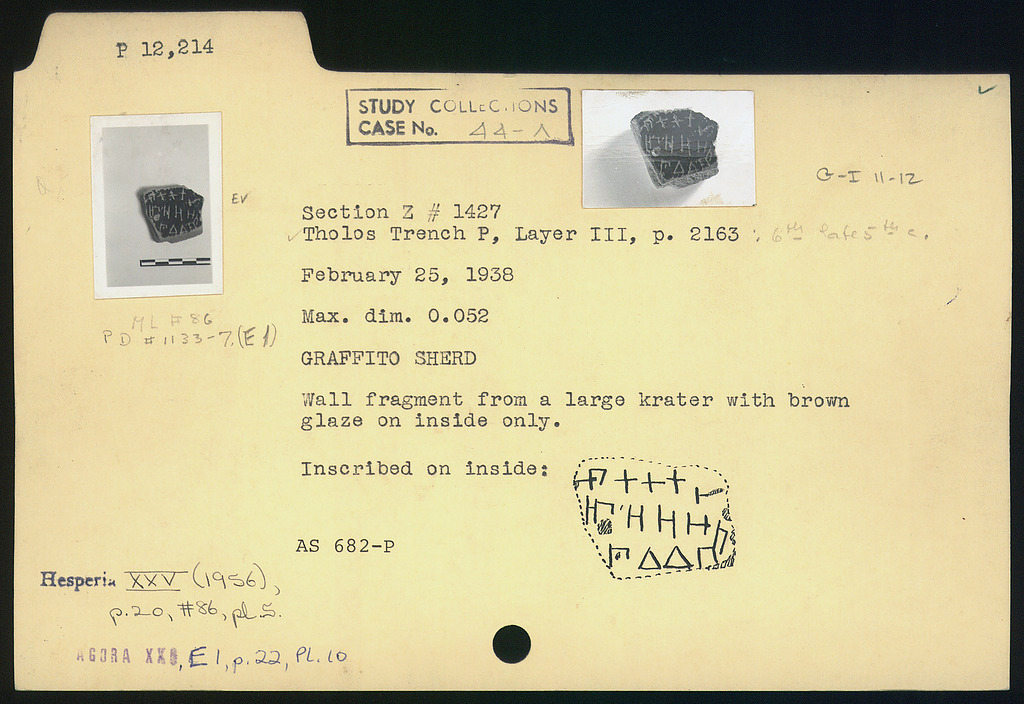 P 12,214
STUDY COLLECTIONS
CASE No. 44-A
G-I 11-12
EV
Section Z # 1427
Tholos Trench P, Layer III, p. 2163 : 6th late 5th c.
February 25, 1938
Max. dim. 0.052
ML # 86
PD # 1133-7. (E 1)
GRAFFITO SHERD
Wall fragment from a large krater with brown
glaze on inside only.
Inscribed on inside:
AS 682-P
Hesperia XXV (1956),
p.20, #86, pl.5.
AGORA XXI, E1, p.22, Pl.10